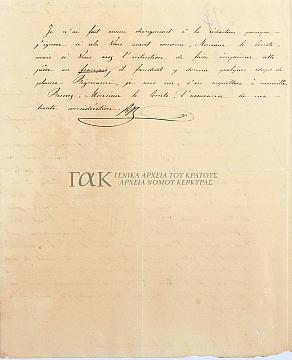 Je n'ai fait aucun changement à la rédaction puisque
j'ignore si cela Vous aurait convenu, Monsieur le Comte,
mais si Vous avez l'intention de faire imprimer cette
pièce en français, il faudrait y donner quelques coups de
plume. Papicano, je suis sur, s'en acquittera à merveille
Agréez, Monsieur le Comte, l'assurance de ma
haute considération.
ΓΑΚ ΓΕΝΙΚΑ ΑΡΧΕΙΑ ΤΟΥ ΚΡΑΤΟΥΣ
ΑΡΧΕΙΑ ΝΟΜΟΥ ΚΕΡΚΥΡΑΣ